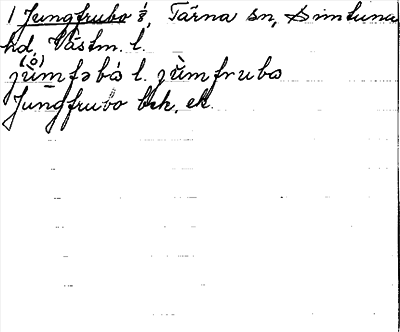 1 Jungfrubo ⅛, Tärna sn, Simtuna
hd, Västm. l.
(ò)
jùmfəbó l. jùmfrubo
Jungfrubo brk. ek.